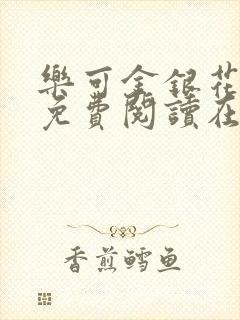 樂可金銀花
免費閱讀在
香煎鳕鱼